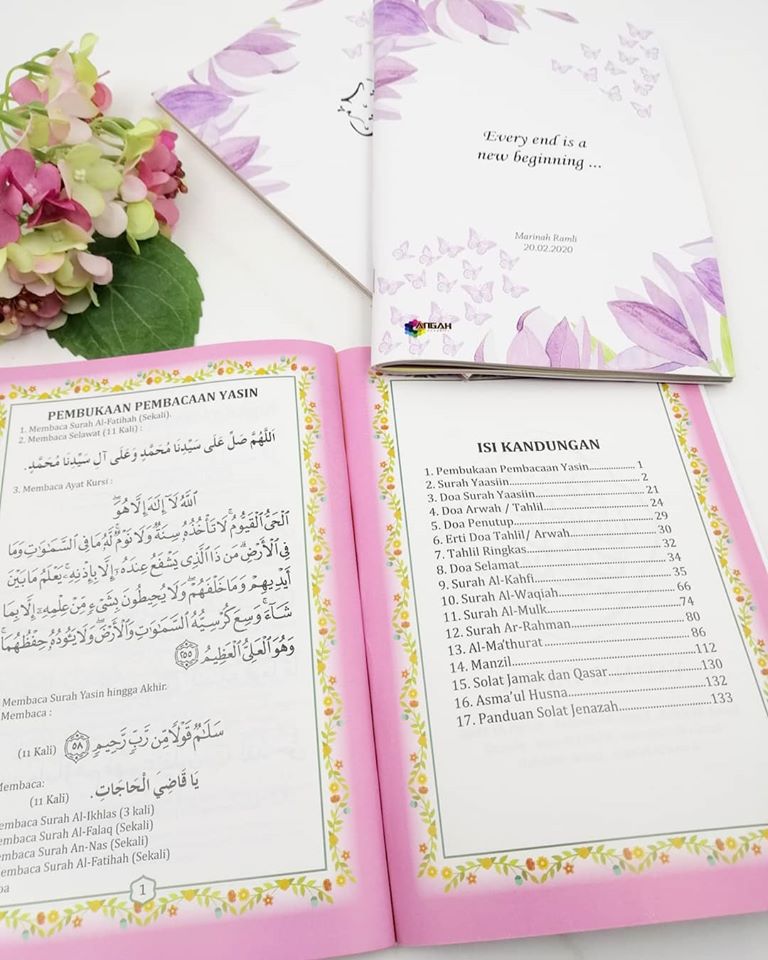 Every end is a
new beginning ...
Marinah Ramli
20.02.2020
ANGAH
PEMBUKAAN PEMBACAAN YASIN
1. Membaca Surah Al-Fatihah (Sekali).
2. Membaca Selawat (11 Kali) :
اَللّٰهُمَّ صَلِّ عَلَى سَيِّدِنَا مُحَمَّدٍ وَعَلَى آلِ سَيِّدِنَا مُحَمَّدٍ.
3. Membaca Ayat Kursi :
ٱللَّهُ لَآ إِلَٰهَ إِلَّا هُوَ
ٱلْحَىُّ ٱلْقَيُّومُ ۚ لَا تَأْخُذُهُۥ سِنَةٌ وَلَا نَوْمٌ ۚ لَّهُۥ مَا فِى ٱلسَّمَٰوَٰتِ وَمَا
فِى ٱلْأَرْضِ ۗ مَن ذَا ٱلَّذِى يَشْفَعُ عِندَهُۥٓ إِلَّا بِإِذْنِهِۦ ۚ يَعْلَمُ مَا بَيْنَ
أَيْدِيهِمْ وَمَا خَلْفَهُمْ ۖ وَلَا يُحِيطُونَ بِشَىْءٍ مِّنْ عِلْمِهِۦٓ إِلَّا بِمَا
شَآءَ ۚ وَسِعَ كُرْسِيُّهُ ٱلسَّمَٰوَٰتِ وَٱلْأَرْضَ ۖ وَلَا يَـُٔودُهُۥ حِفْظُهُمَا ۚ
وَهُوَ ٱلْعَلِىُّ ٱلْعَظِيمُ ٢٥٥
Membaca Surah Yasin hingga Akhir.
Membaca :
سَلَٰمٌ قَوْلًا مِّن رَّبٍّ رَّحِيمٍ ٥٨ (11 Kali)
embaca:
يَا قَاضِيَ الْحَاجَاتِ. (11 Kali)
embaca Surah Al-Ikhlas (3 kali)
embaca Surah Al-Falaq (Sekali)
embaca Surah An-Nas (Sekali)
embaca Surah Al-Fatihah (Sekali)
oa
1
ISI KANDUNGAN
1. Pembukaan Pembacaan Yasin................ 1
2. Surah Yaasiin................ 2
3. Doa Surah Yaasiin................ 21
4. Doa Arwah / Tahlil................ 24
5. Doa Penutup................ 29
6. Erti Doa Tahlil/ Arwah................ 30
7. Tahlil Ringkas................ 32
8. Doa Selamat................ 34
9. Surah Al-Kahfi................ 35
10. Surah Al-Waqiah................ 66
11. Surah Al-Mulk................ 74
12. Surah Ar-Rahman................ 80
13. Al-Ma'thurat................ 86
14. Manzil................ 112
15. Solat Jamak dan Qasar................ 130
16. Asma'ul Husna................ 132
17. Panduan Solat Jenazah................ 133